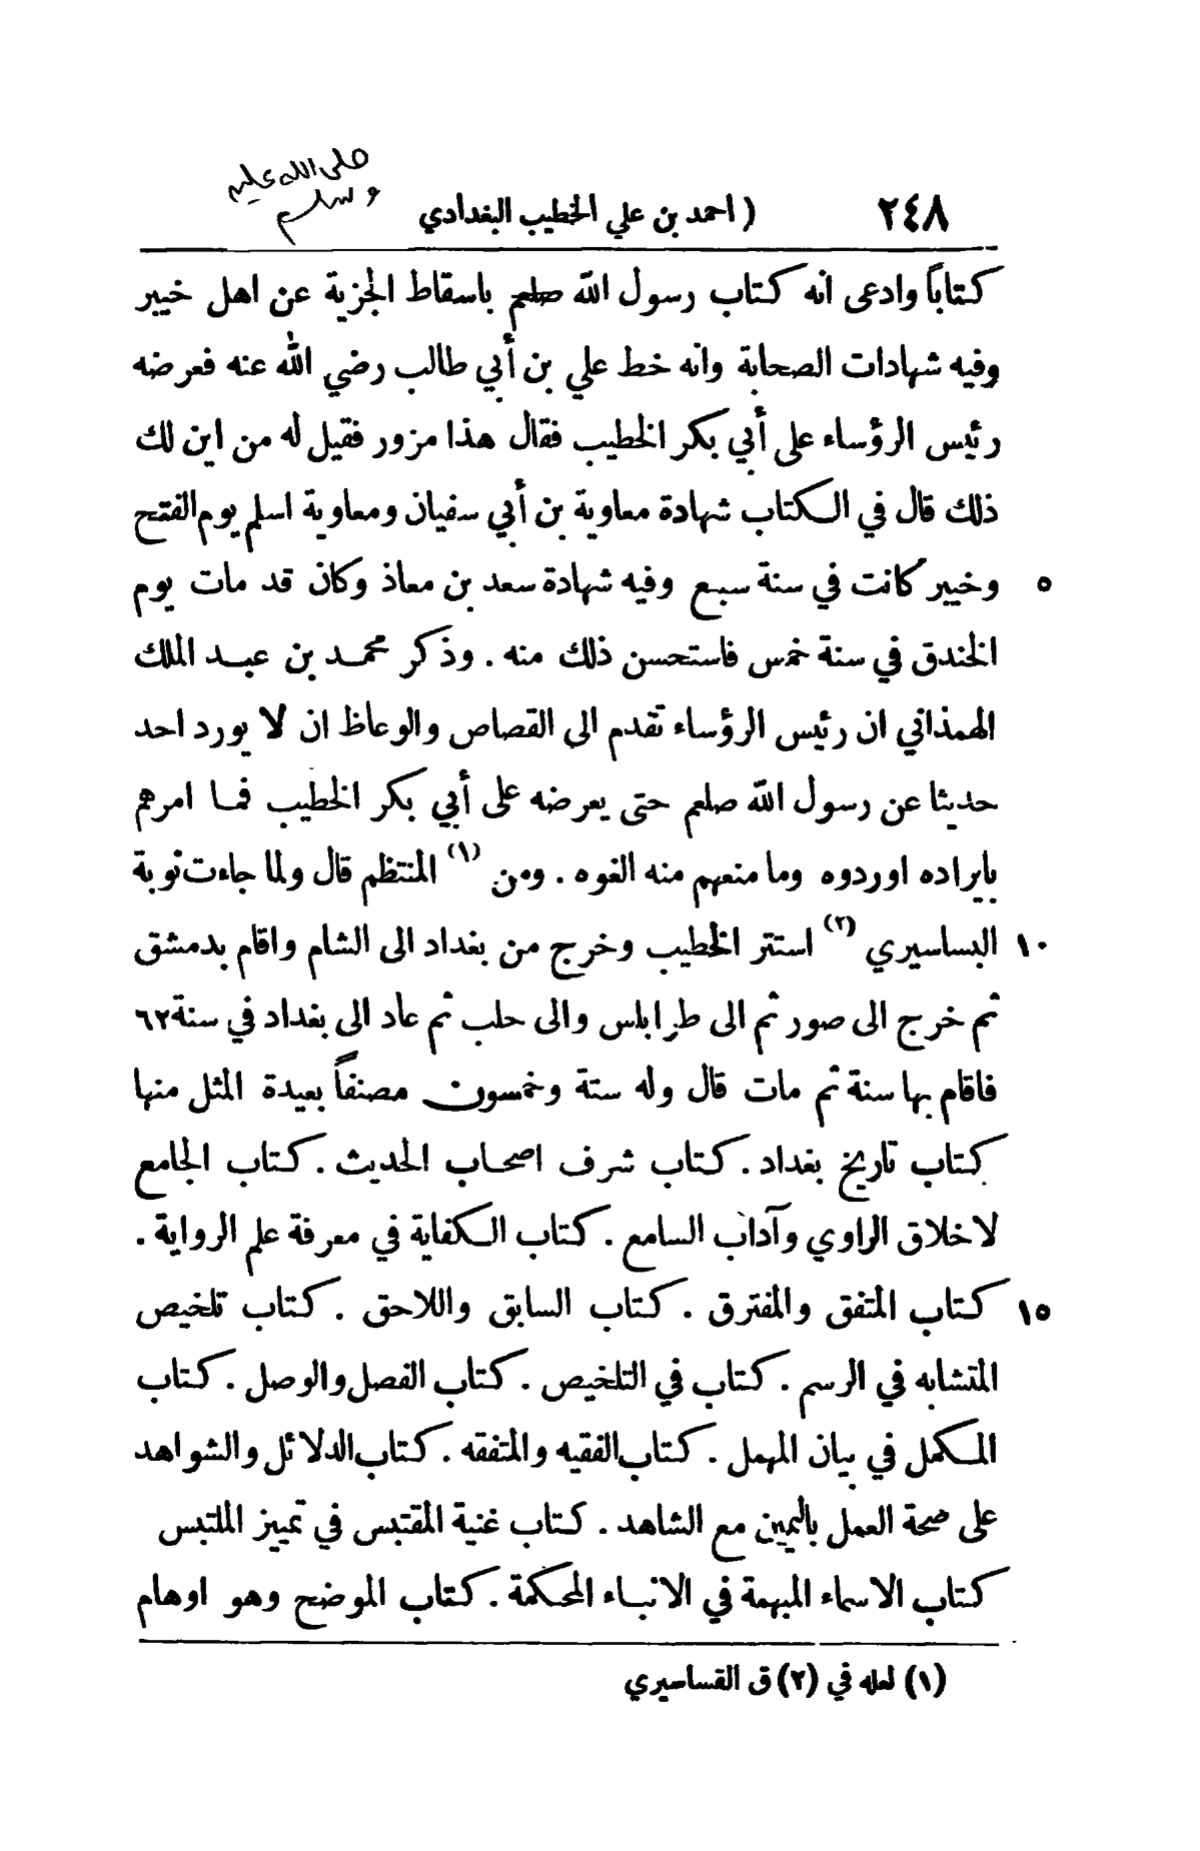 صلى الله عليه
وسلم
٢٤٨ ( احمد بن علي الخطيب البغدادي
كتاباً وادعى انه كتاب رسول الله صلعم باسقاط الجزية عن اهل خيبر
وفيه شهادات الصحابة وانه خط علي بن أبي طالب رضي الله عنه فعرضه
رئيس الرؤساء على أبي بكر الخطيب فقال هذا مزور فقيل له من اين لك
ذلك قال في الكتاب شهادة معاوية بن أبي سفيان ومعاوية اسلم يوم الفتح
٥ وخيبر كانت في سنة سبع وفيه شهادة سعد بن معاذ وكان قد مات يوم
الخندق في سنة خمس فاستحسن ذلك منه . وذكر محمد بن عبد الملك
الهمذاني ان رئيس الرؤساء تقدم الى القصاص والوعاظ ان لا يورد احد
حديثا عن رسول الله صلعم حتى يعرضه على أبي بكر الخطيب فما امرهم
بايراده اوردوه وما منعهم منه الغوه . ومن (١) المنتظم قال ولما جاءت نوبة
١٠ البساسيري (٢) استتر الخطيب وخرج من بغداد الى الشام واقام بدمشق
ثم خرج الى صور ثم الى طرابلس والى حلب ثم عاد الى بغداد في سنة ٦٢
فاقام بها سنة ثم مات قال وله ستة وخمسون مصنفاً بعيدة المثل منها
كتاب تاريخ بغداد . كتاب شرف اصحاب الحديث . كتاب الجامع
لاخلاق الراوي وآداب السامع . كتاب الكفاية في معرفة علم الرواية .
١٥ كتاب المتفق والمفترق . كتاب السابق واللاحق . كتاب تلخيص
المتشابه في الرسم . كتاب في التلخيص . كتاب الفصل والوصل . كتاب
المكمل في بيان المهمل . كتاب الفقيه والمتفقه . كتاب الدلائل والشواهد
على صحة العمل باليمين مع الشاهد . كتاب غنية المقتبس في تمييز الملتبس
كتاب الاسماء المبهمة في الانباء المحكمة . كتاب الموضح وهو اوهام
(١) لعله في (٢) ق القساسيري